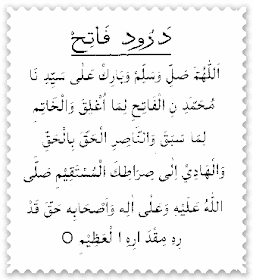 دَرُودِ فَاتِحْ
اَللّٰهُمَّ صَلِّ وَسَلِّمْ وَبَارِكْ عَلٰى سَيِّدِ نَا
مُحَمَّدِ نِ الْفَاتِحِ لِمَا اُغْلِقَ وَالْخَاتِمِ
لِمَا سَبَقَ وَالنَّاصِرِ الْحَقِّ بِالْحَقِّ
وَالْهَادِيْ اِلٰى صِرَاطِكَ الْمُسْتَقِيْمِ صَلَّى
اللهُ عَلَيْهِ وَعَلٰى اٰلِهٖ وَاَصْحَابِهٖ حَقَّ قَدْ
رِهٖ مِقْدَ ارِهِ ا لْعَظِيْمِ O